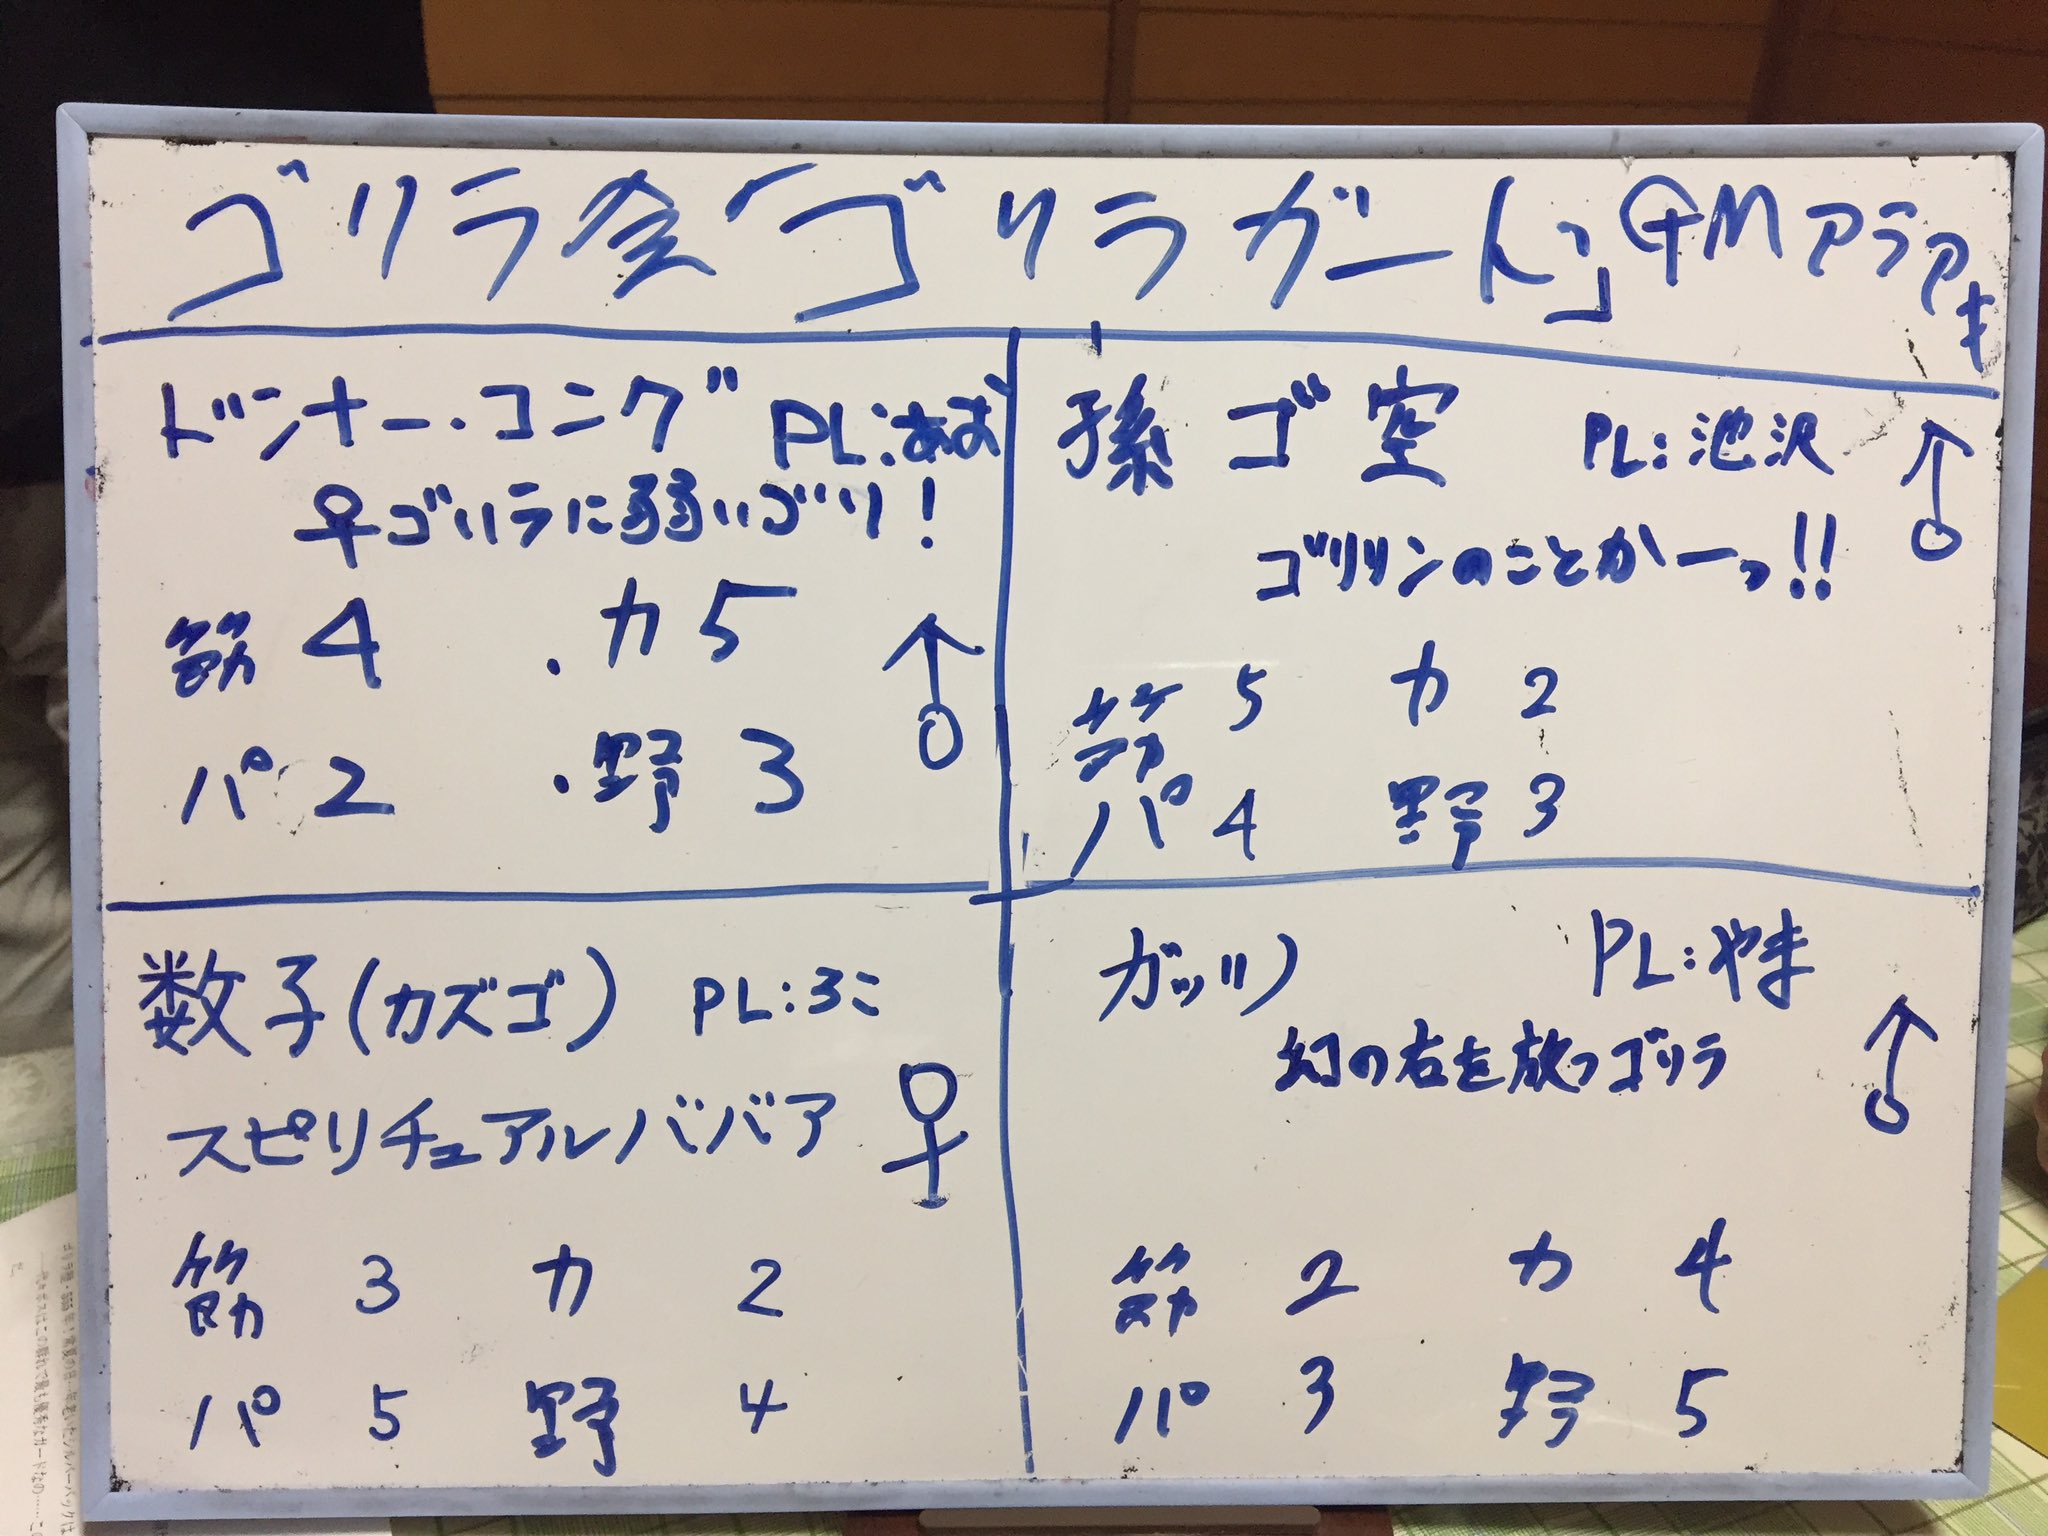 ゴリラ会「ゴリラガード」GMアラアキ
ドンナー・コング PL:あお
♀ゴリラに弱いゴリ!
筋4 ・力5 ♂
パ2 ・野3
孫ゴ空 PL:池沢 ♂
ゴリリンのことかーっ!!
筋5 力2
パ4 野3
数子(カズゴ) PL:ろこ
スピリチュアルババア ♀
筋3 力2
パ5 野4
ガッツリ PL:やま
幻の右を放つゴリラ ♂
筋2 力4
パ3 野5